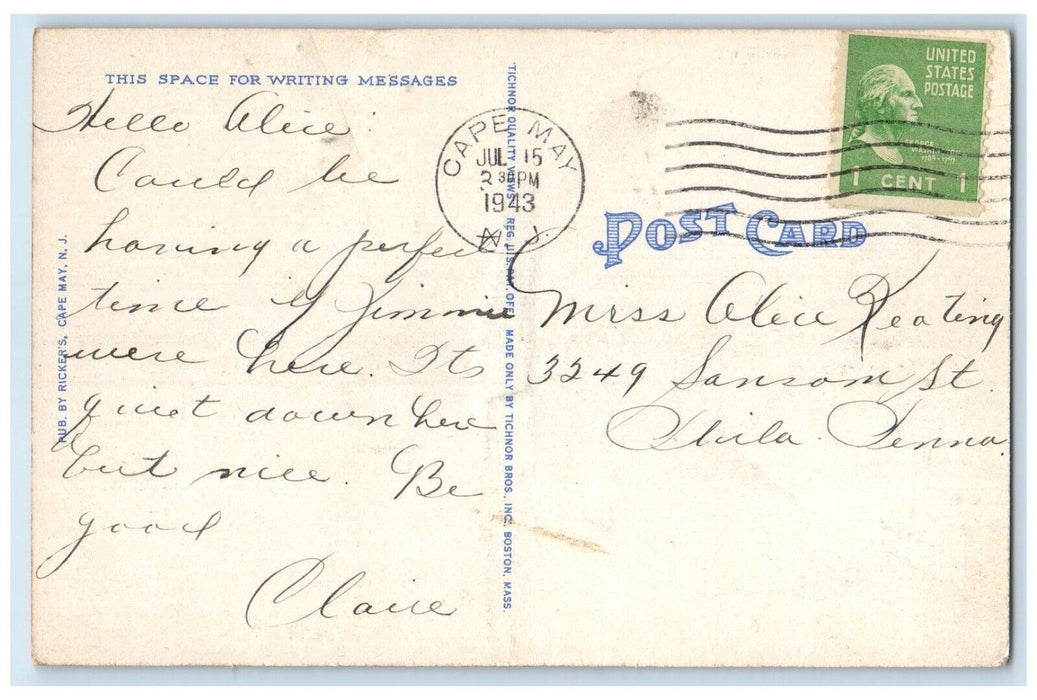 THIS SPACE FOR WRITING MESSAGES
Hello Alice:
Could be
having a perfect
time if Jimmie
were here. Its
quiet down here
but nice. Be
good
Claire
PUB. BY RICKER'S, CAPE MAY, N. J.
TICHNOR QUALITY VIEWS REG. U. S. PAT. OFF. MADE ONLY BY TICHNOR BROS., INC., BOSTON, MASS.
CAPE MAY
JUL 15
3 30 PM
1943
N. J.
UNITED
STATES
POSTAGE
GEORGE
WASHINGTON
1789-1797
1 CENT 1
POST CARD
Miss Alice Keating
3249 Sansom St.
Phila. Penna.